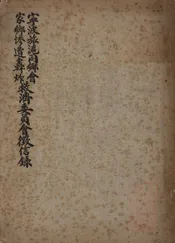 寧波旅滬同鄉會
家鄉慘遭轟炸救濟委員會徵信錄